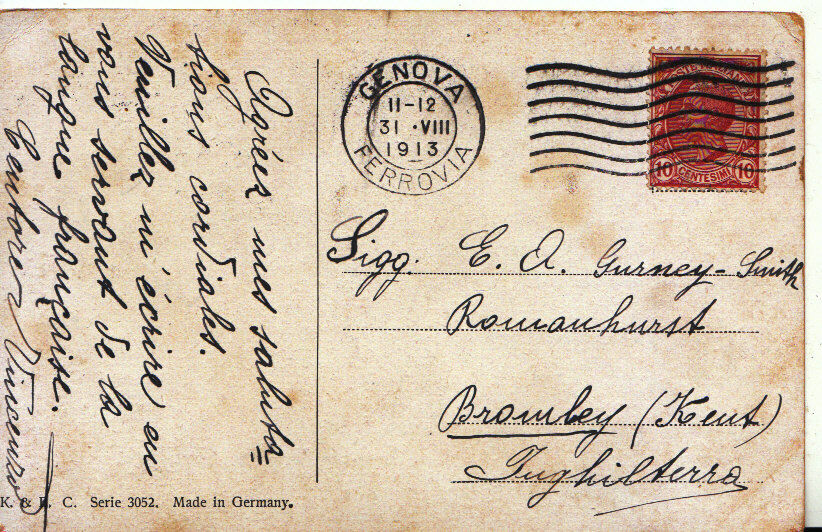 Agréez mes saluta=
tions cordiales.
Veuillez m'écrire en
vous servant de la
langue française.
Vincenzo
GENOVA
11-12
31 · VIII
1913
FERROVIA
POSTE ITALIANE
10 CENTESIMI 10
Sigg. E. A. Gurney-Smith
Romanhurst
Bromley (Kent)
Inghilterra
K. & C. Serie 3052. Made in Germany.